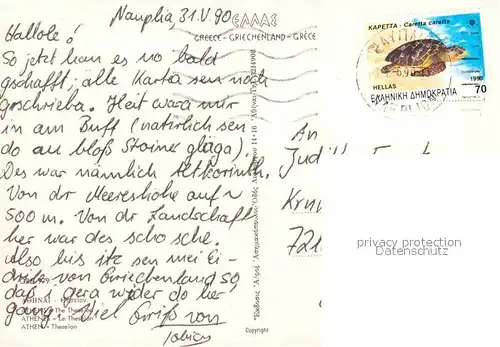 Nauplia, 31.V.90
Hallole!
So jetzt han es no bald
gschafft; alle Karta sen noch
gschrieba. Heit wara mir
in am Buff (natürlich sen
do au bloß Stoiner glaga).
Des war nämlich Altkorinth.
Von dr Meereshöhe auf
500 m. Von dr Landschaft
her war des scho sche.
Also bis itz sen mei Ei-
drück von Griechenland so,
daß i gera wider do her
gang! Viel Grüß von
Tobias
ΕΛΛΑΣ
GREECE - GRIECHENLAND - GRÈCE
ΚΑΡΕΤΤΑ - Caretta caretta
HELLAS
1990
ΕΛΛΗΝΙΚΗ ΔΗΜΟΚΡΑΤΙΑ
70
An
Jud
721
privacy protection
Datenschutz
ΑΘΗΝΑΙ
The Theseion
ATHENES - Le Theseion
ATHEN - Theseion
Copyright